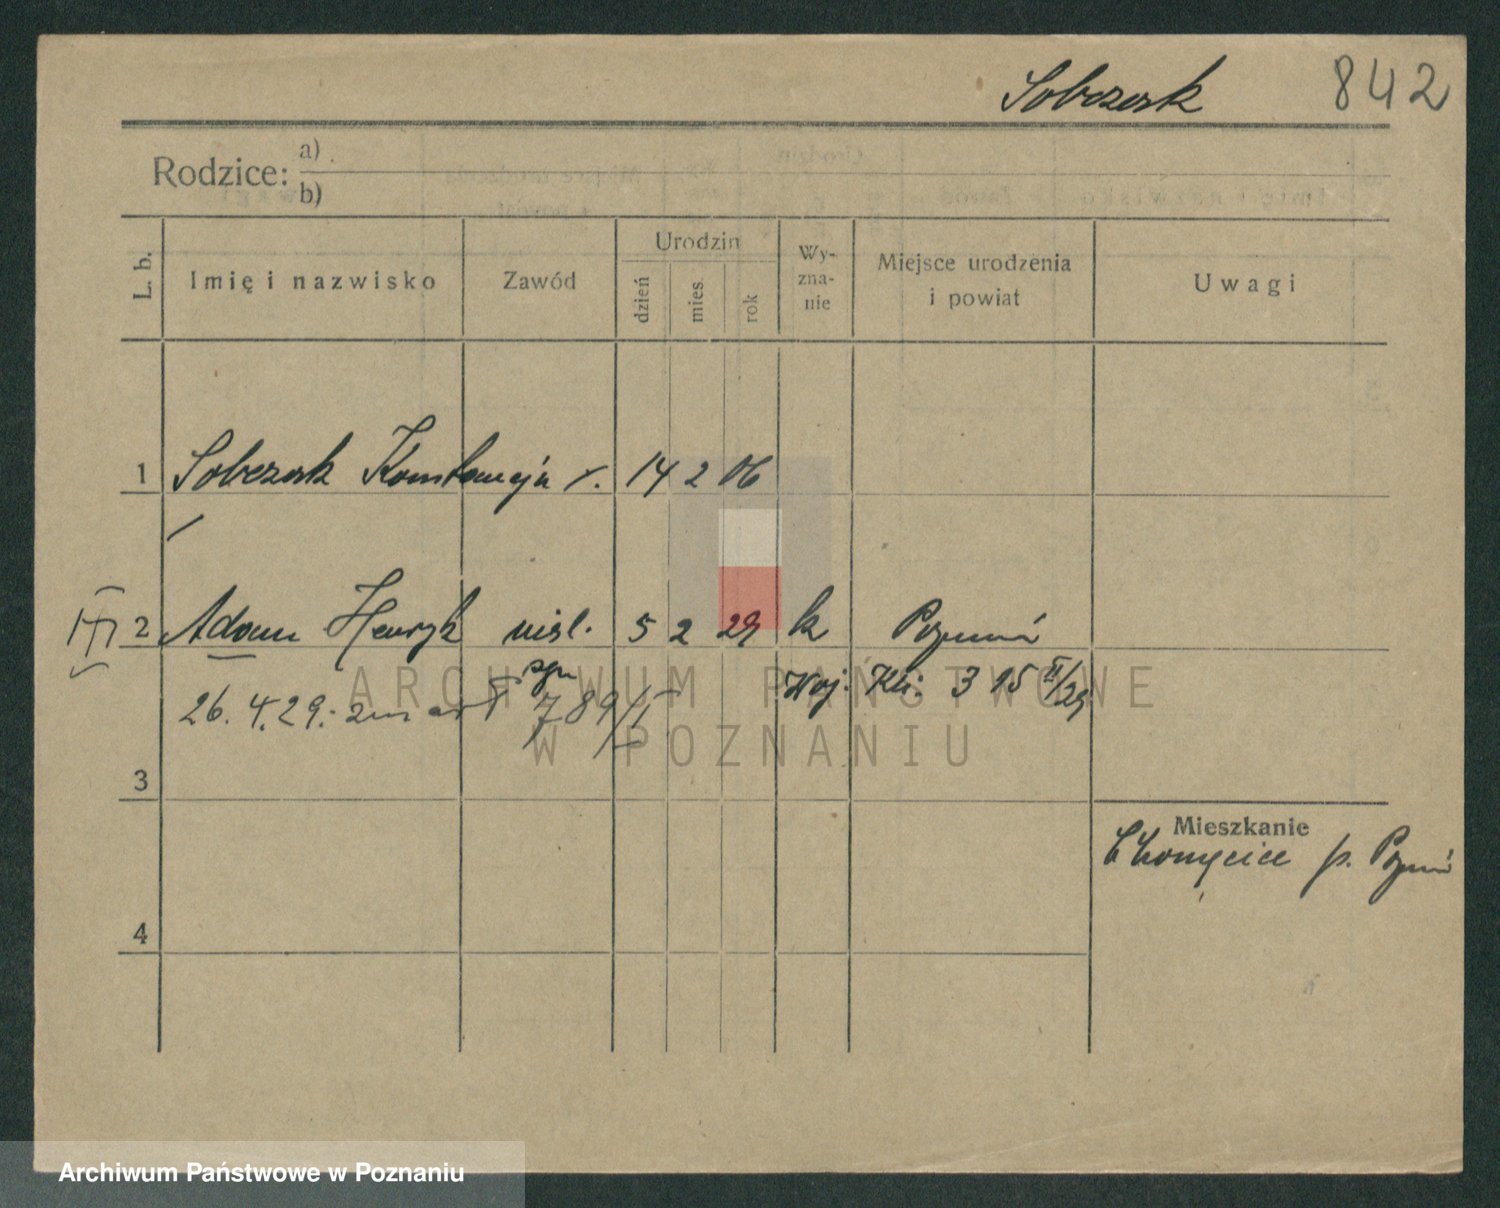 Sobczak 842
Rodzice: a)
b)
L. b. Imię i nazwisko Zawód Urodzin dzień mies. rok Wy-zna-nie Miejsce urodzenia i powiat Uwagi
1 Sobczak Konstancja 14 2 06
III 2 Adam Henryk nieśl. 5 2 29 k Poznań
26.4.29. zmarł 789/I Woj. Kli. 3 15 II/29
3
Mieszkanie
Chomęcice p. Poznań
4
ARCHIWUM PAŃSTWOWE
W POZNANIU
Archiwum Państwowe w Poznaniu